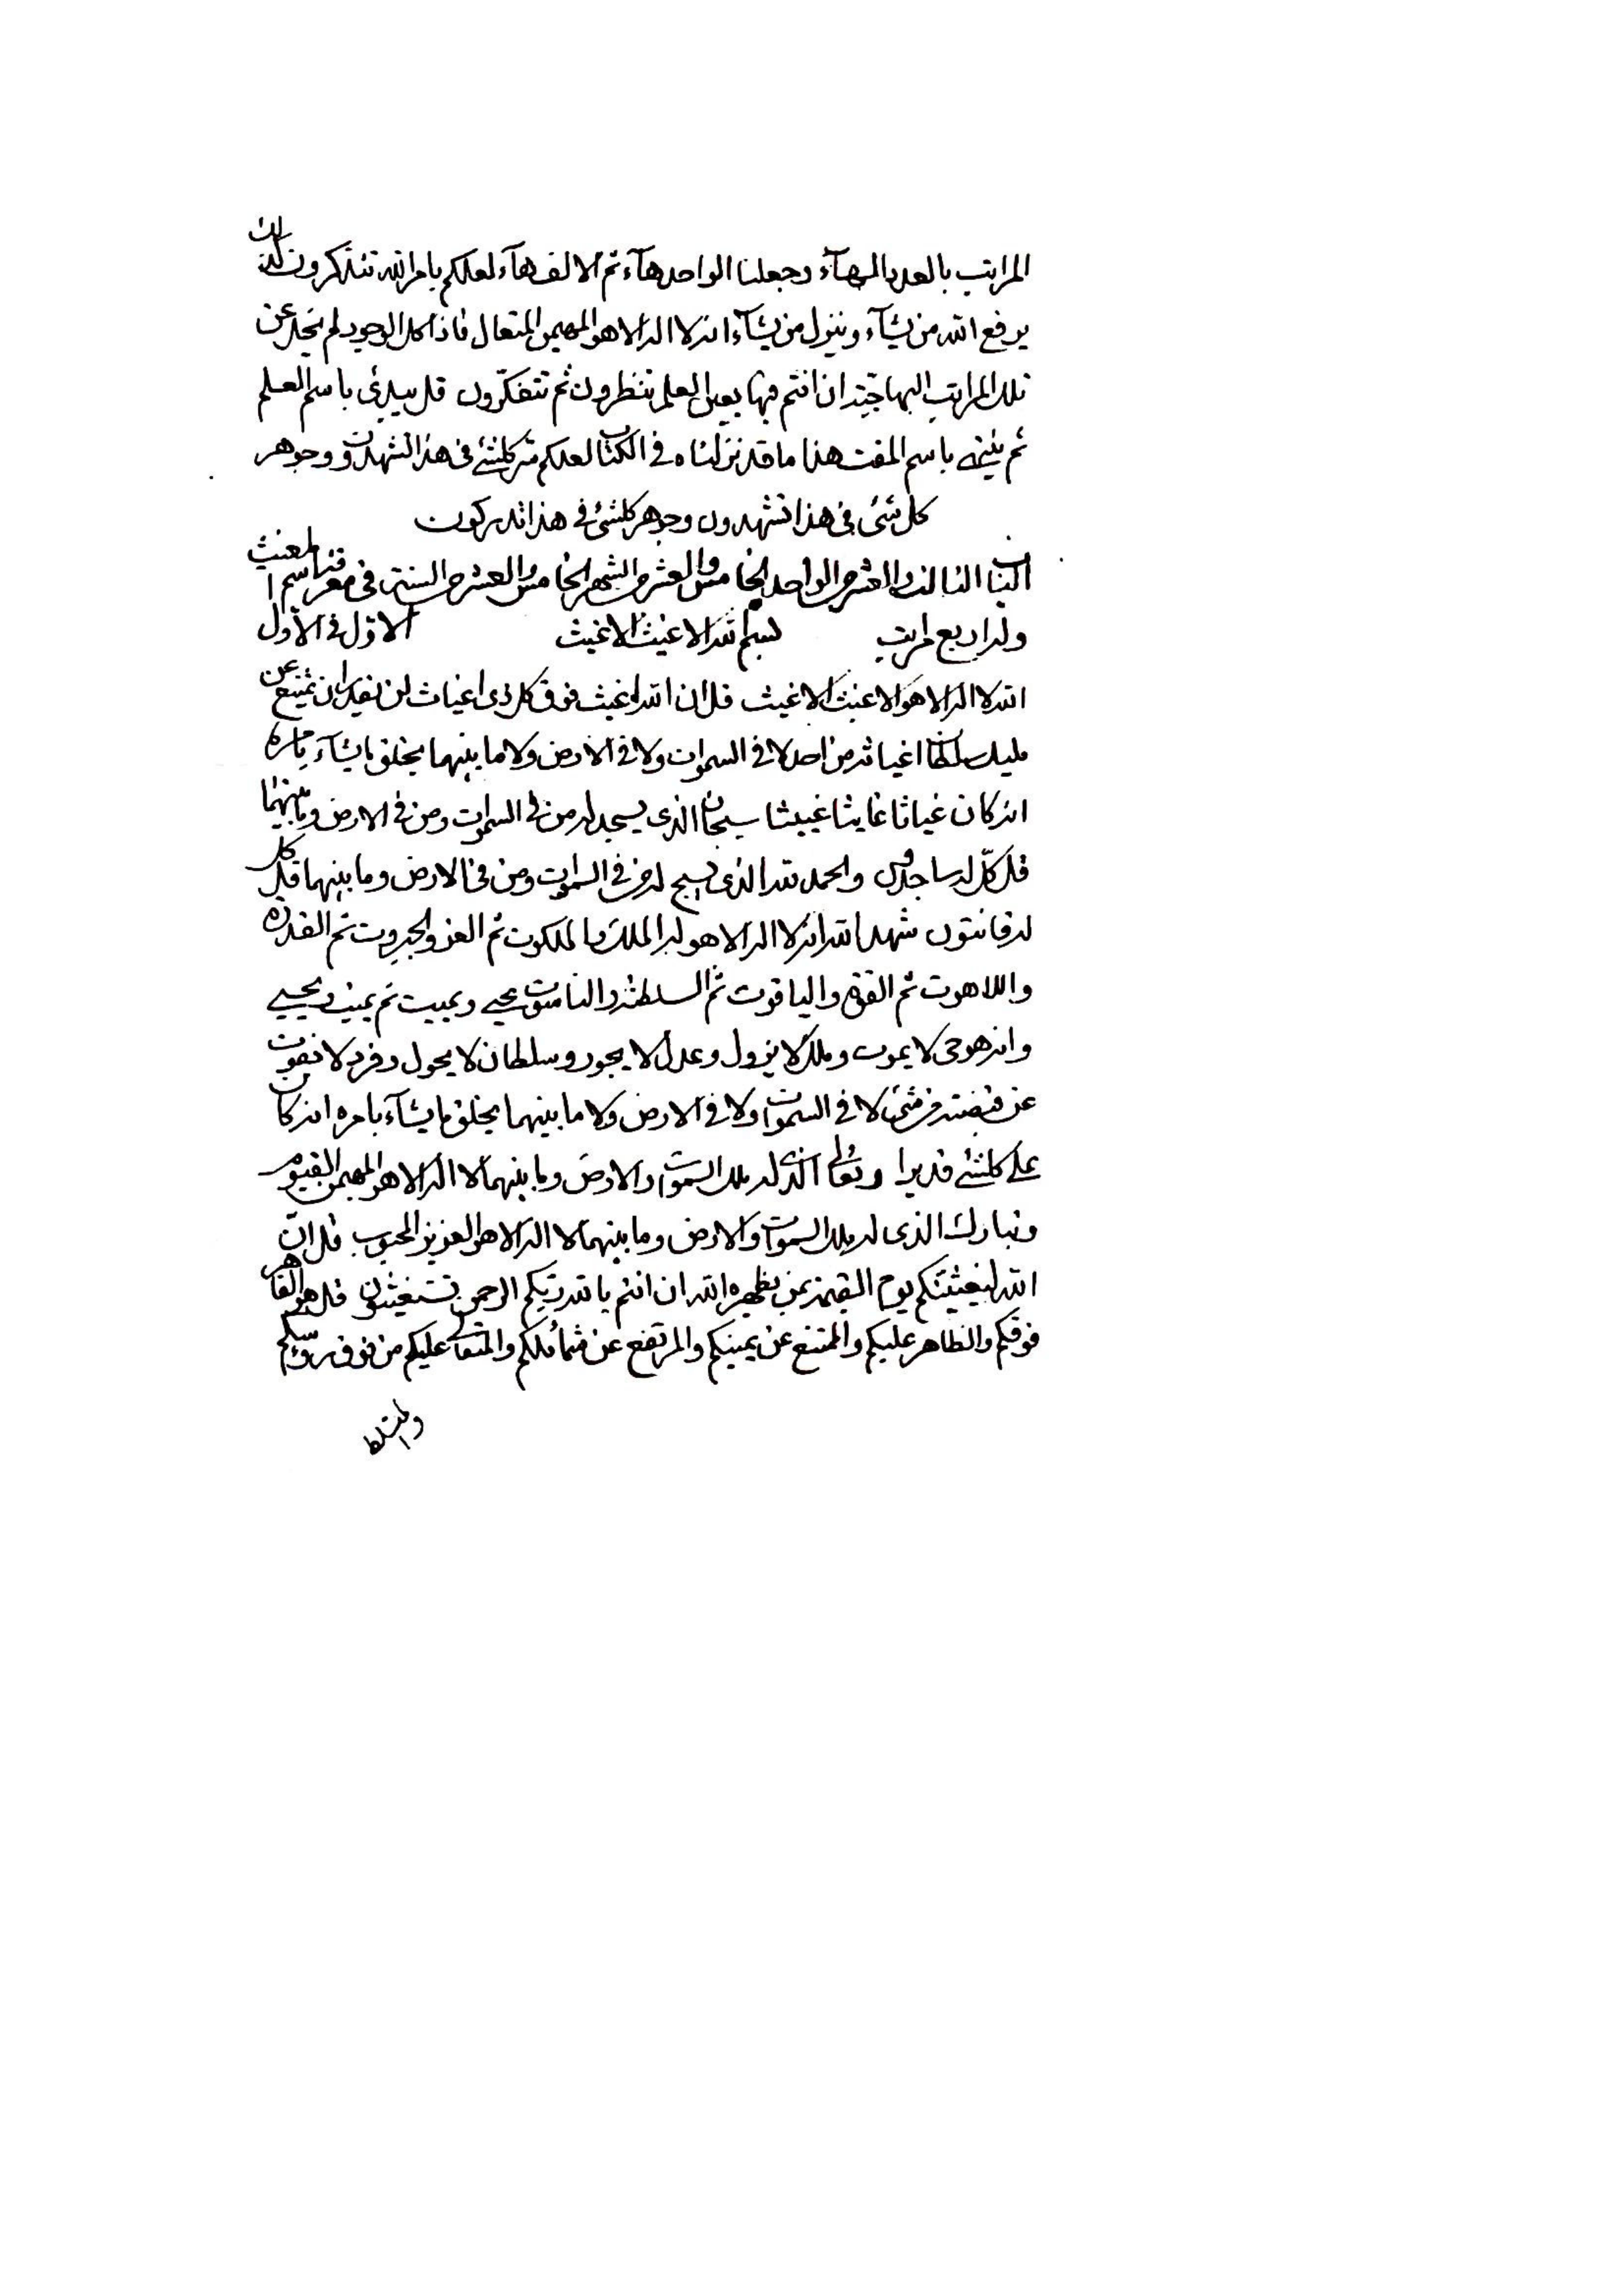 المراتب بالعدد الهآء وجعلنا الواحد هآء ثم الالف هآء لعلكم بامر الله تتذكرون كذلك
يرفع الله من يشآء وينزل من يشآء انه لا اله الا هو المهيمن المتعال فاذا كل الوجود لم يخل عن
تلك المراتب البهاجية ان انتم فيها بعين العلم تنظرون ثم تتفكرون قل يبدئ باسم العلم
ثم ينتهى باسم هذا ما قد نزلناه فى الكتاب لعلكم سر كلشئ فى هذا تشهدون وجوهر
كل شئ فى هذا تشهدون وجوهر كلشئ فى هذا تدركون
الباب الثالث والعشر من الواحد الخامس والعشر من الشهر الخامس والعشر من السنة فى معرفة اسم المغيث
وله اربع مراتب بسم الله الاغيث الاغيث الاول فى الاول
الله لا اله الا هو الاغيث الاغيث قل ان الله اغيث فوق كل ذى اغياث لن يقدر ان يمتنع عن
مليك سلطان اغياثه من احد لا فى السموات ولا فى الارض ولا ما بينهما يخلق ما يشآء بامره
انه كان غياثا غايثا غييثا سبحان الذى يسجد له من فى السموات ومن فى الارض وما بينهما
قل كل له ساجدون والحمد لله الذى يسبح له من فى السموات ومن فى الارض وما بينهما قل كل
له قانتون شهد الله انه لا اله الا هو له الملك والملكوت ثم العز والجبروت ثم القدرة
واللاهوت ثم القوة والياقوت ثم السلطنة والناسوت يحيى ويميت ثم يميت ويحيى
وانه هو حى لا يموت وملك لا يزول وعدل لا يجور وسلطان لا يحول وفرد لا يفوت
عن قبضته من شئ لا فى السموات ولا فى الارض ولا ما بينهما يخلق ما يشآء بامره انه كان
على كلشئ قديرا وتعالى الذى له ملك السموات والارض وما بينهما لا اله الا هو المهيمن القيوم
وتبارك الذى له ملك السموات والارض وما بينهما لا اله الا هو العزيز المحبوب قل ان
الله ليغيثنكم يوم القيمة بمن يظهره الله ان انتم بالله ربكم الرحمن تستغيثون قل هو القاهر
فوقكم والظاهر عليكم والممتنع عن يمينكم والمرتفع عن شمائلكم والمتعالى عليكم من فوق رؤسكم
والمتسلط